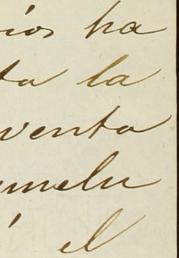 ios ha
ta la
venta
umelu
el